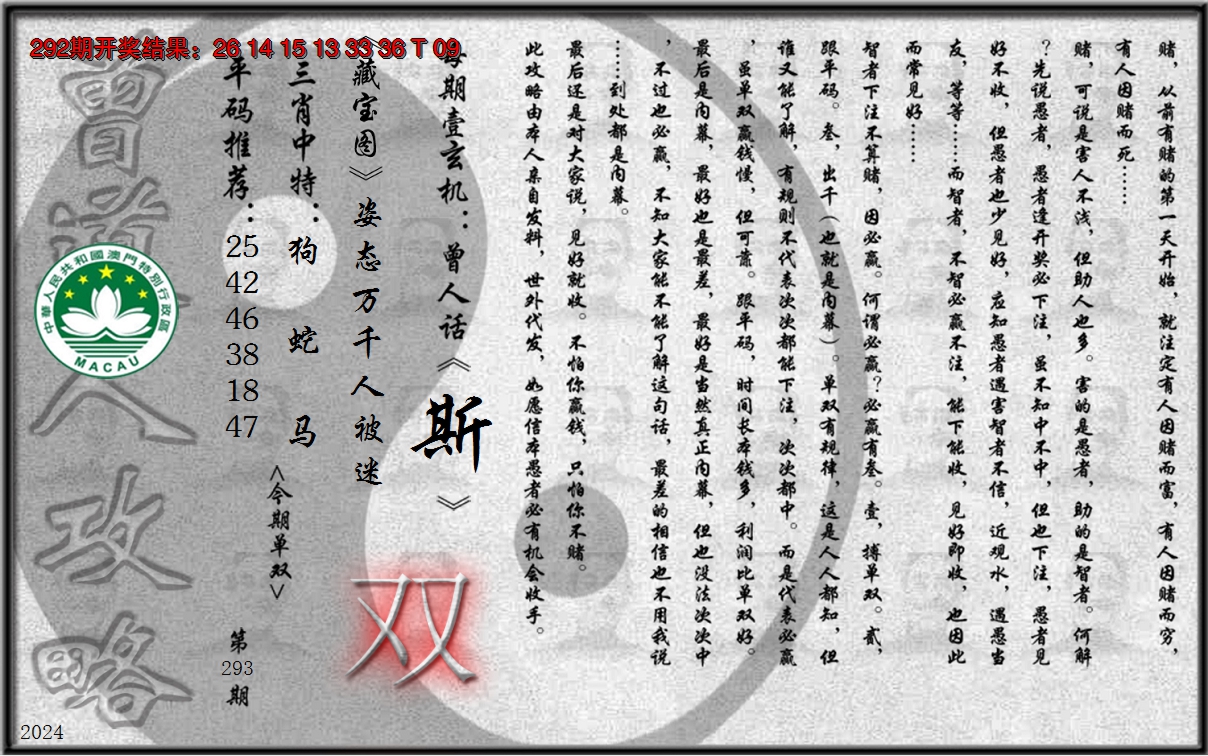 292期开奖结果：26 14 15 13 33 36 T 09
赌，从前有赌的第一天开始，就注定有人因赌而富，有人因赌而穷，
有人因赌而死……
赌，可说是害人不浅，但助人也多。害的是愚者，助的是智者。何解
？先说愚者，愚者逢开奖必下注，虽不知中不中，但也下注，愚者见
好不收，但愚者也少见好，应知愚者遇害智者不信，近观水，遇愚当
友，等等……而智者，不智必赢不注，能下能收，见好即收，也因此
而常见好……
智者下注不算赌，因必赢。何谓必赢？必赢有叁。壹，搏单双。贰，
跟平码。叁，出千（也就是内幕）。单双有规律，这是人人都知，但
谁又能了解，有规则不代表次次都能下注，次次都中。而是代表必赢
，虽单双赢钱慢，但可靠。跟平码，时间长本钱多，利润比单双好。
最后是内幕，最好也是最差，最好是当然真正内幕，但也没法次次中
，不过也必赢，不知大家能不能了解这句话，最差的相信也不用我说
……到处都是内幕。
最后还是对大家说，见好就收。不怕你赢钱，只怕你不赌。
此攻略由本人亲自发料，世外代发，如愿信本愚者必有机会收手。
每期壹玄机：曾人话《斯》
《藏宝图》姿态万千人被迷
双
三肖中特：狗 蛇 马
<今期单双>
平码推荐：25 42 46 38 18 47
第293期
曾道人攻略
中華人民共和國澳門特別行政區
MACAU
2024